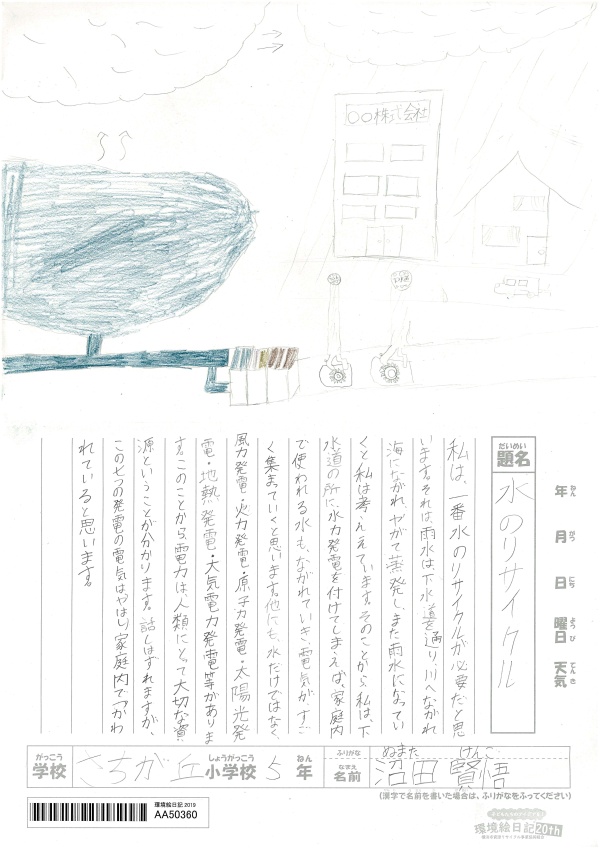 〇〇株式会社
だいめい
題名
水のリサイクル
年 ねん
月 がつ
日 にち
曜日 ようび
天気 てんき
私は、一番水のリサイクルが必要だと思
います。それは、雨水は、下水道を通り、川へながれ
海にながれ、やがて蒸発し、また雨水になってい
くと私は考んえています。そのことから、私は、下
水道の所に、水力発電を付けてしまえば、家庭内
で使われる水も、ながれていき、電気が、すご
く集まっていくと思います。他にも、水だけではなく、
風力発電・火力発電・原子力発電・太陽光発
電・地熱発電・大気電力発電等がありま
す。このことから、電力は、人類にとって大切な資
源ということが分かります。話しはずれますが、
この七つの発電の電気は、やはり、家庭内でつかわ
れていると思います。
がっこう
学校
さちが丘
しょうがっこう
小学校
5
ねん
年
ふりがな
ぬまた けんご
なまえ
名前
沼田 賢悟
(漢字で名前を書いた場合は、ふりがなをふってください)
環境絵日記2019
AA50360
環境絵日記20th